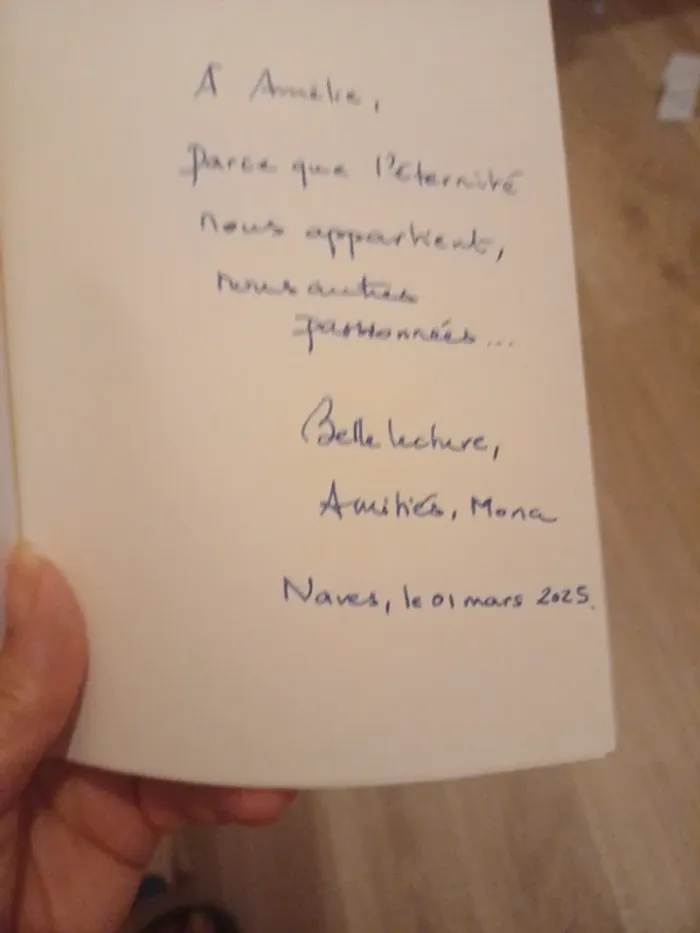 À Amélie,
Parce que l'éternité
nous appartient,
nous autres
passionnées...
Belle lecture,
Amitiés, Mona
Naves, le 01 mars 2025.